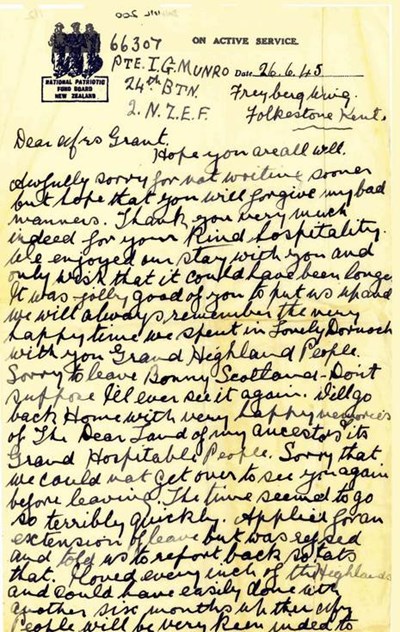 66307
ON ACTIVE SERVICE.
PTE. I.G. MUNRO Date 26.6.45
24th BTN. Freyberg Wing.
2.N.Z.E.F. Folkestone Kent.
NATIONAL PATRIOTIC
FUND BOARD
NEW ZEALAND
Dear Mrs Grant.
Hope you are all well.
Awfully sorry for not writing sooner
but hope that you will forgive my bad
manners. Thank you very much
indeed for your kind hospitality.
We enjoyed our stay with you and
only wish that it could have been longer
It was jolly good of you to put us up and
we will always remember the very
happy time we spent in Lovely Dornoch
with you Grand Highland People.
Sorry to leave Bonny Scotland - Don't
suppose I'll ever see it again. Will go
back Home with very happy memories
of The Dear Land of my ancestors & its
Grand Hospitable People. Sorry that
we could not get over to see you again
before leaving. The time seemed to go
so terribly quickly. Applied for an
extension of leave but was refused
and told us to report back so thats
that. I loved every inch of the Highlands
and could have easily done with
another six months up there. My
People will be very keen indeed to